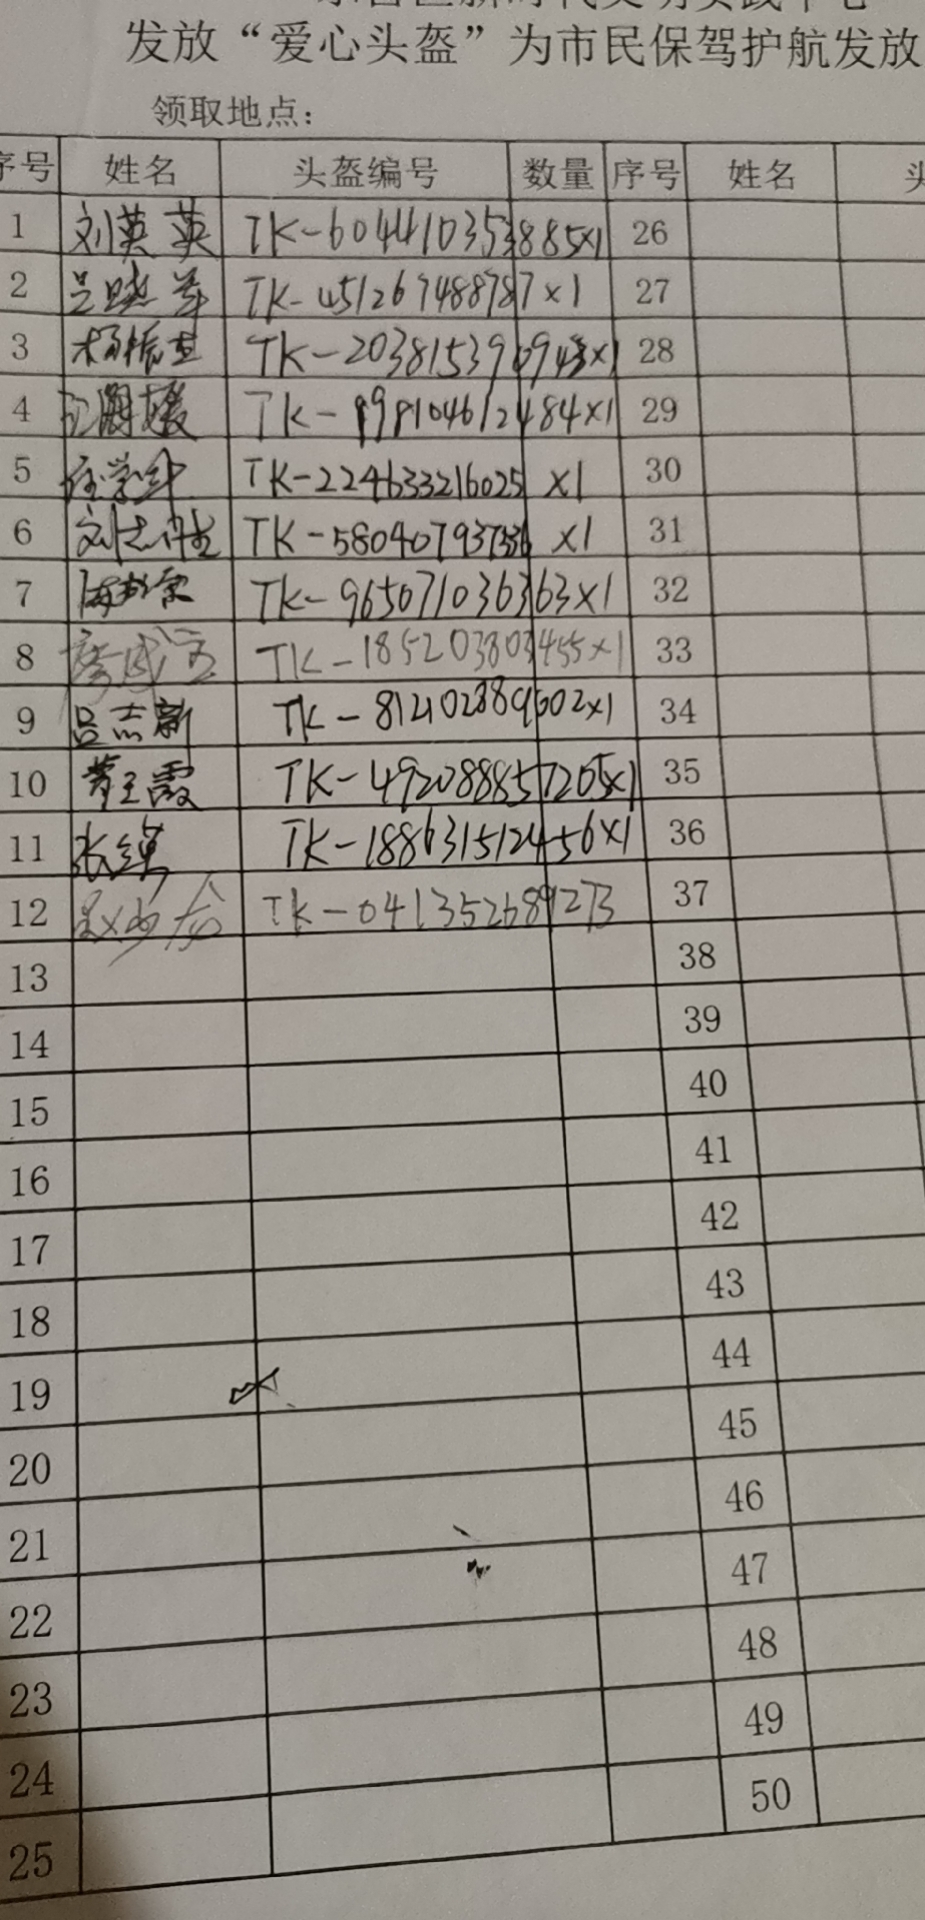 发放“爱心头盔”为市民保驾护航发放
领取地点：
序号 姓名 头盔编号 数量 序号 姓名 头
1 刘英英 TK-6044410353885×1 26
2 吕晓 TK-451267488787×1 27
3 杨振 TK- 28
4 TK-998104612484×1 29
5 TK-224633216025 ×1 30
6 刘志 TK- ×1 31
7 TK-965071036363×1 32
8 TK-185203803455×1 33
9 吕志新 TK- 34
10 霞 TK-492088857205×1 35
11 张 TK-188631512456×1 36
12 TK-041352689273 37
13 38
14 39
15 40
16 41
17 42
18 43
19 44
20 45
21 46
22 47
23 48
24 49
25 50